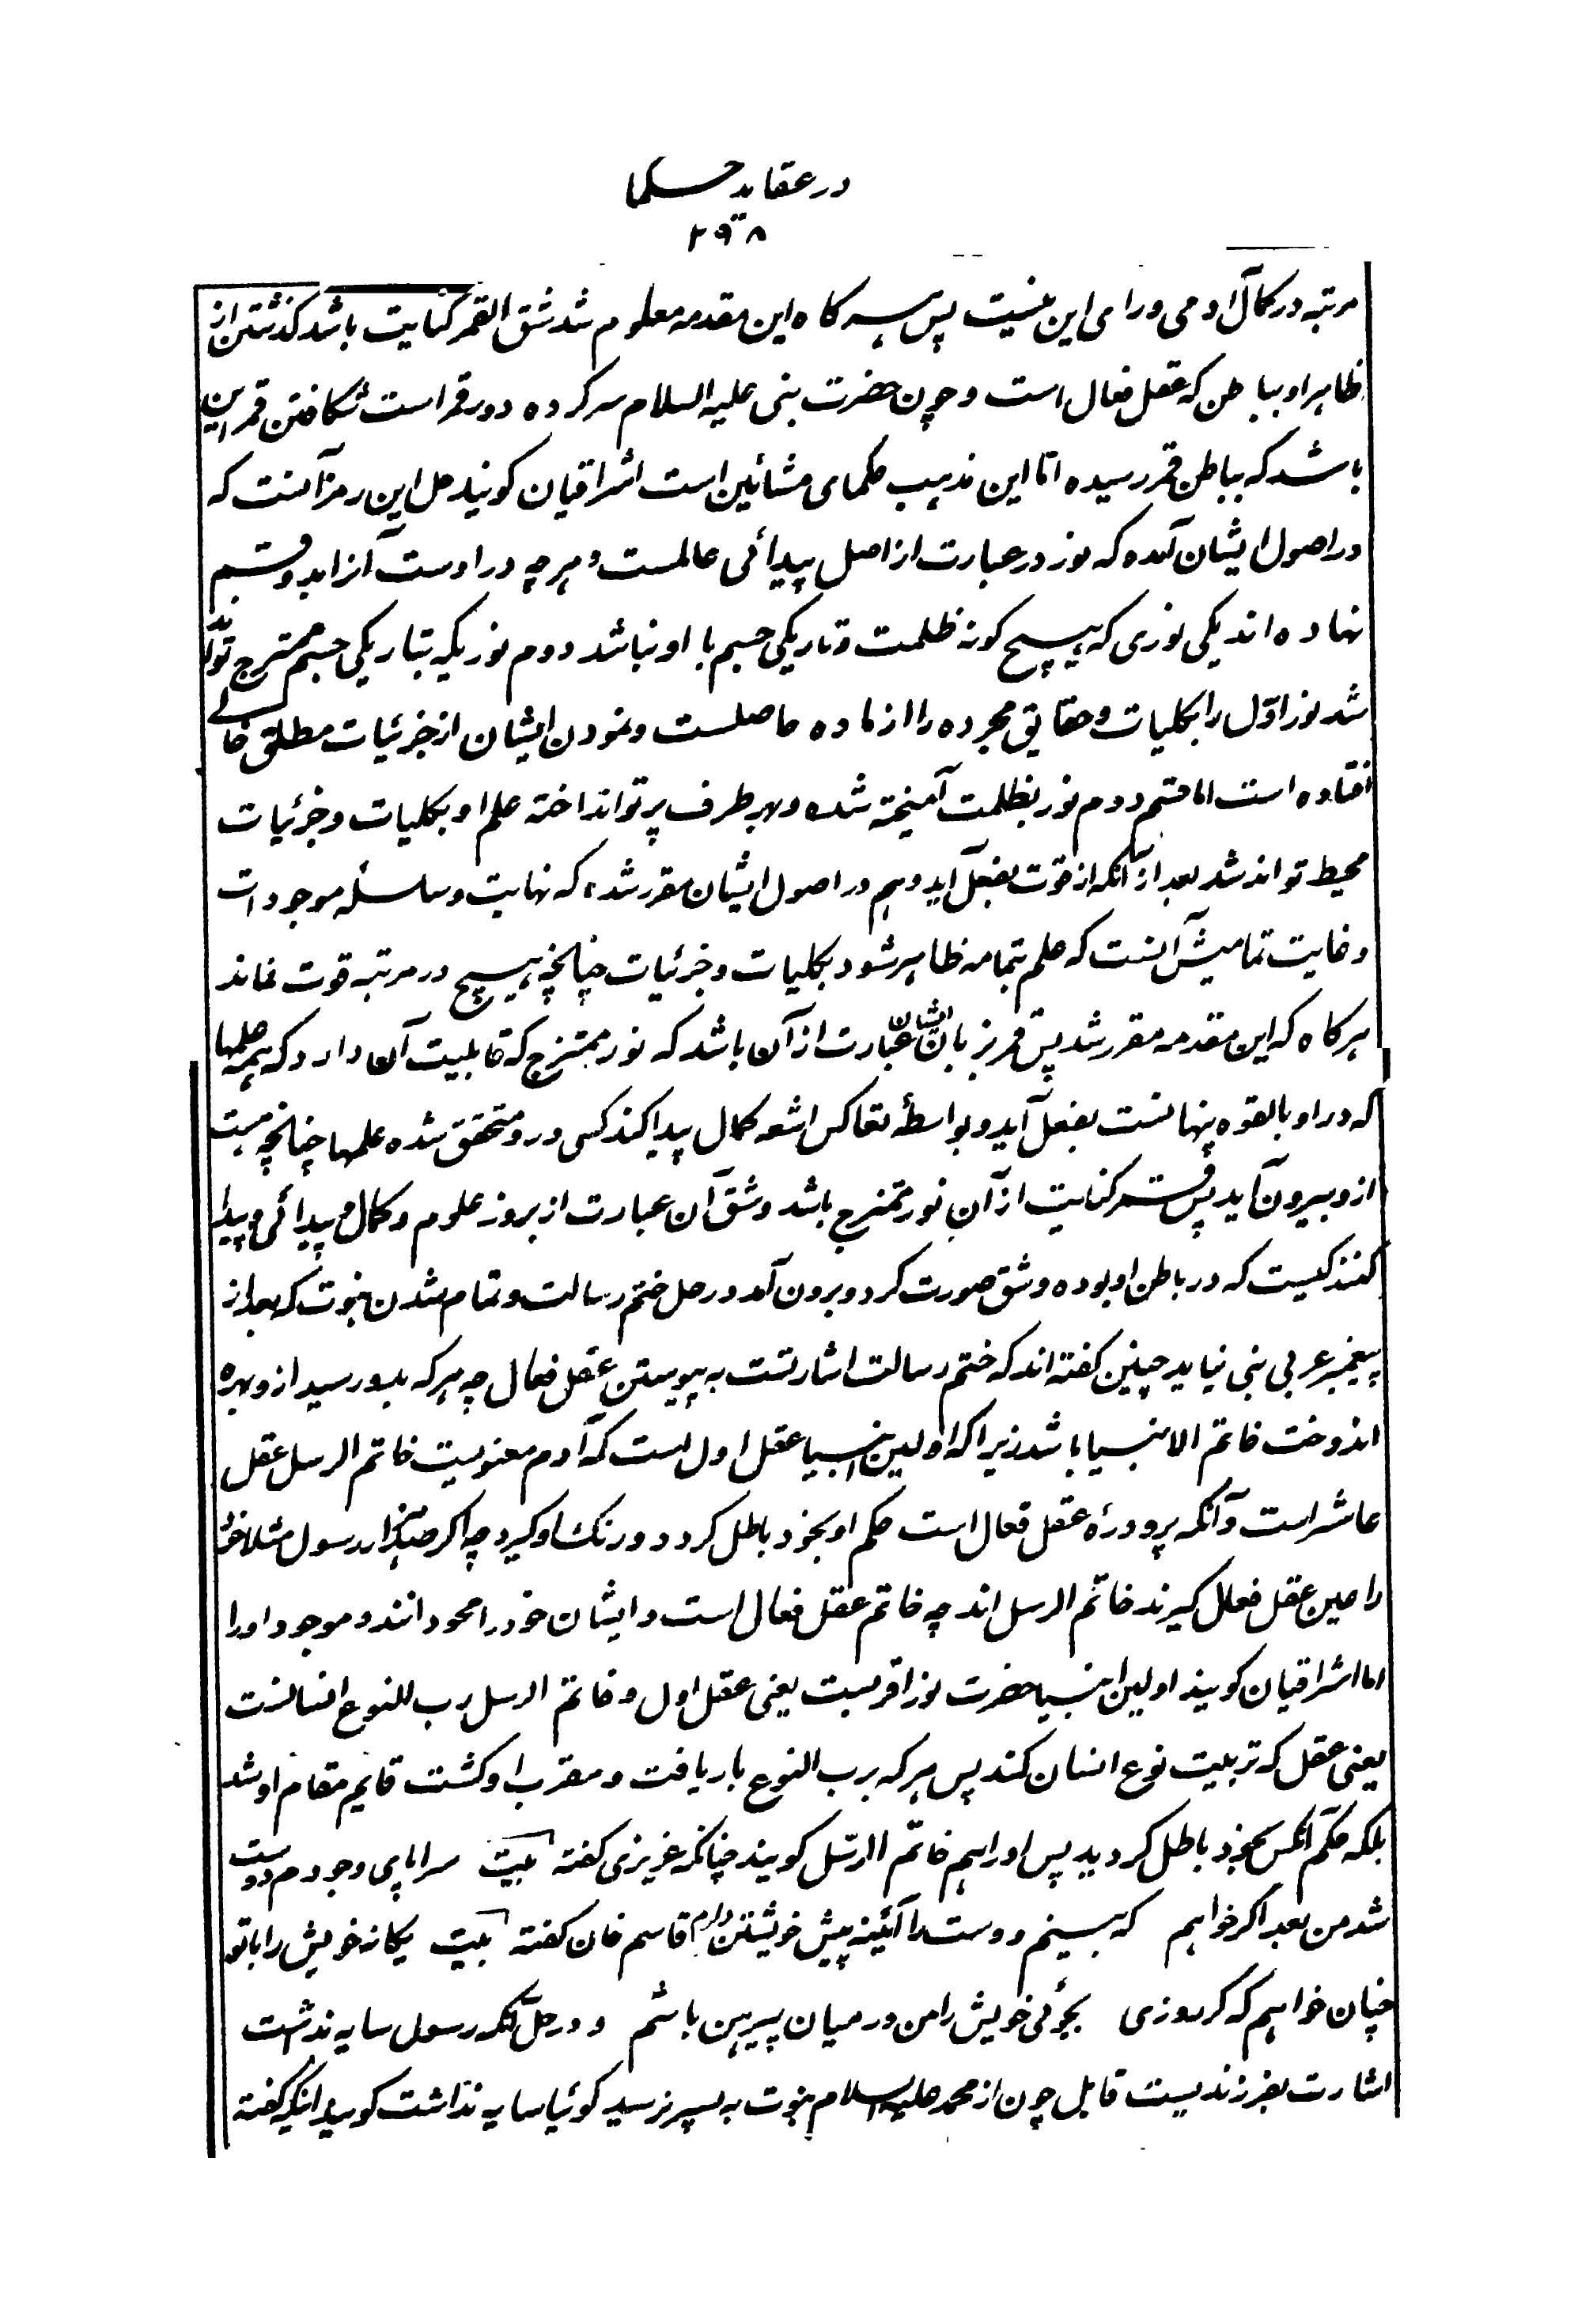 در عقاید حکما
۲۹۸
مرتبه در کمال ادمی ورای این نیست پس هرگاه این مقدمه معلوم شد شق القمر کنایت باشد گذشتن از
ظاهر او بباطن که عقل فعال است و چون حضرت نبی علیه السلام سر کرده دور قمر است شکافتن قمر این
باشد که بباطن قمر رسیده اما این مذهب حکمای مشائین است اشراقیان گویند حل این رمز آنست که
در اصول ایشان آمده که نور در عبارت از اصل پیدائی عالمست و هر چه در اوست آنرا بدو قسم
نهاده اند یکی نوری که هیچ گونه ظلمت و تاریکی جسم با او نباشد دوم نوریکه بتاریکی جسم ممتزج تواند
شد نور اول را بکلیات و حقایق مجرده را از ماده حاصلست و نمودن ایشان از جزئیات مطلق خالی
افتاده است اما قسم دوم نور بظلمت آمیخته شده و بهر طرف پرتو انداخته علم او بکلیات و جزئیات
محیط تواند شد بعد از آنکه از قوت بفعل آید و هم در اصول ایشان مقرر شده که نهایت و سلسله موجودات
و غایت تمامیش آنست که علم بتمامه ظاهر شود بکلیات و جزئیات چنانچه هیچ در مرتبه قوت نماند
هرگاه که این مقدمه مقرر شد پس قمر بزبان ایشان عبارت از آن باشد که نور ممتزج که قابلیت آن دارد که همه علمها
که در او بالقوه پنهانست بفعل آید و بواسطهٔ تعاکس اشعه کمال پیدا کند کسی در و متحقق شده علمها چنانچه هست
از و بیرون آید پس قمر کنایت از آن نور ممتزج باشد و شق آن عبارت از بروز علوم و کمال و پیدائی و پیدا
کنندگیست که در باطن او بوده و شق صورت کرد و برون آمد در حل ختم رسالت و تمام شدن نبوت که بعد از
پیغمبر عربی نبی نیاید چنین گفته اند که ختم رسالت اشارتست به پیوستن عقل فعال چه هر که بدو رسید از و بهره
اندوخت خاتم الانبیا باشد زیرا که اولین انبیا عقل اول است که آدم معنویست خاتم الرسل عقل
عاشر است و آنکه پروردهٔ عقل فعال است حکم او بخود باطل گردد و رنگ او گیرد چه اگر صد هزار رسول مثلا خود
را عین عقل فعال گیرند خاتم الرسل اند چه خاتم عقل فعال است و ایشان خود را محو دانند و موجود او را
اما اشراقیان گویند اولین انبیا حضرت نور اقربست یعنی عقل اول و خاتم الرسل رب النوع انسانست
یعنی عقل که تربیت نوع انسان کند پس هر که برب النوع بار یافت و مقرب او گشت قایم مقام او شد
بلکه حکم آنکس بخود باطل گردید پس او را هم خاتم الرسل گویند چنانکه عزیزی گفته بیت سراپای وجودم دوست
شد من بعد اگر خواهم که بینم دوست را آئینه پیش خویشتن دارم قاسم خان گفته بیت یگانه خویش را با تو
چنان خواهم که گر روزی بجوئی خویش را من در میان پیرهن باشم و در حل آنکه رسول سایه نداشت
اشارت بفرزندیست قابل چون از محمد علیه السلام نبوت به پسر نرسید گوئیا سایه نداشت گویند آنکه گفته